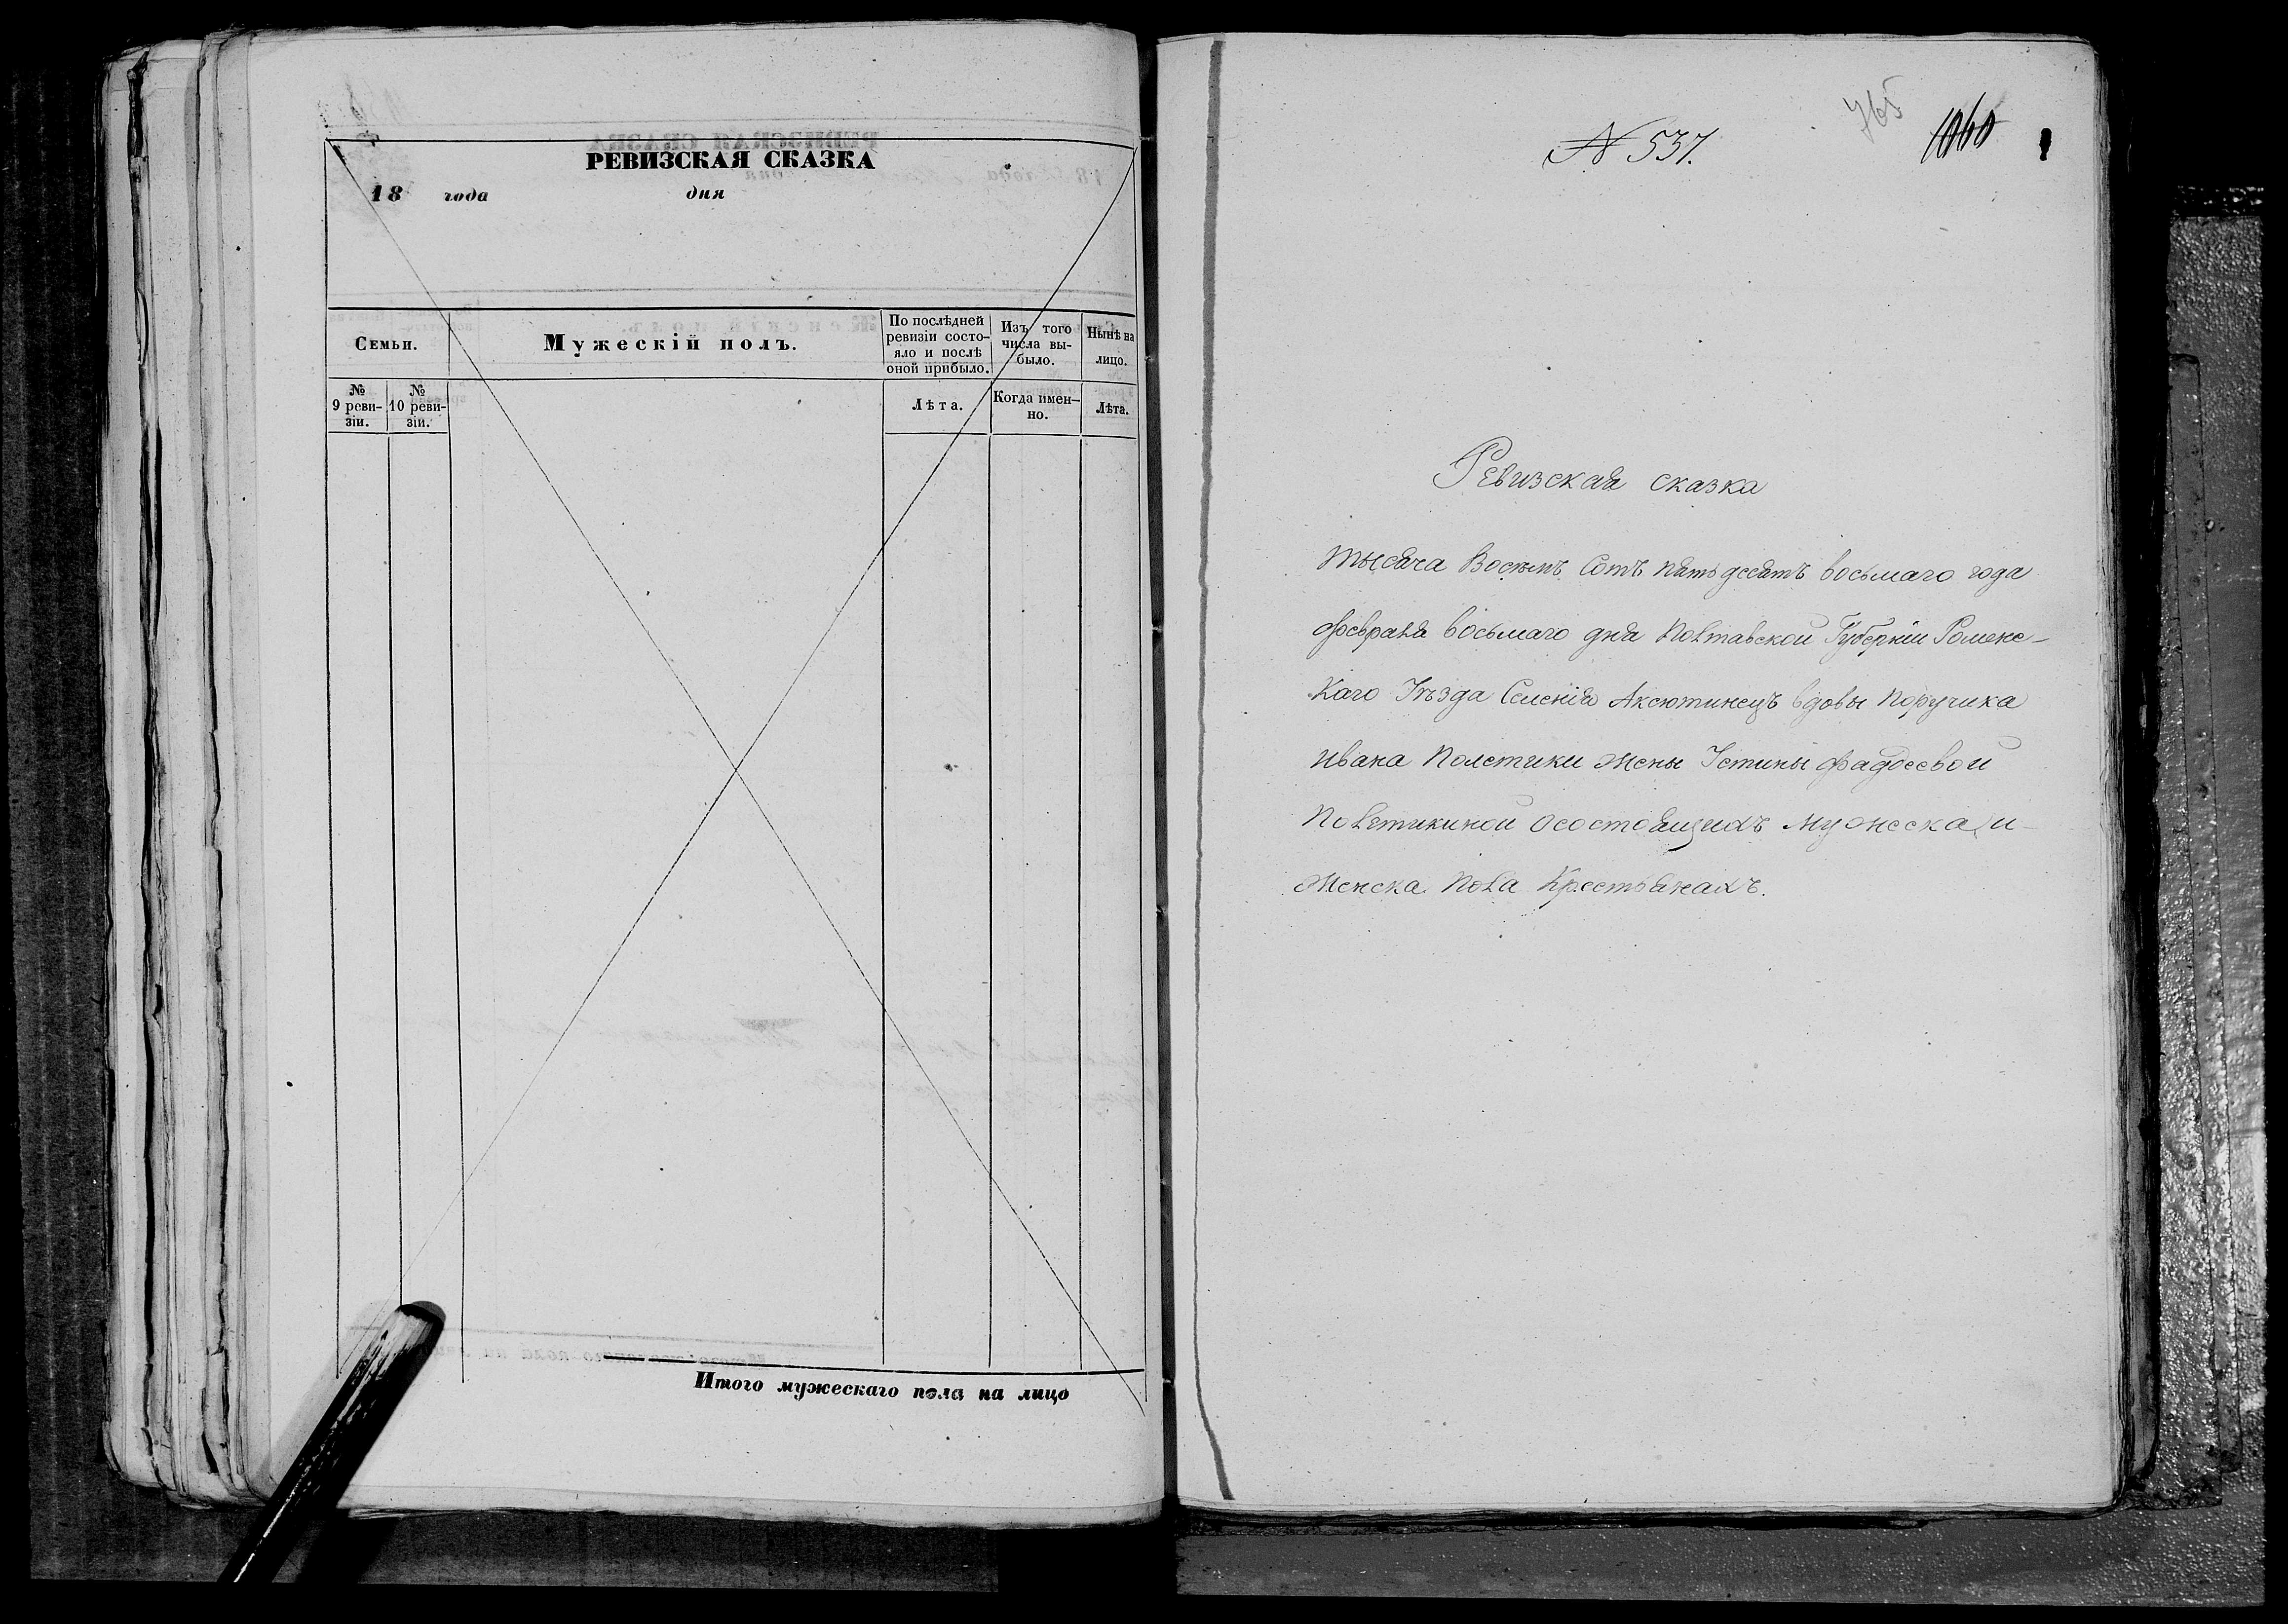 РЕВИЗСКАЯ СКАЗКА
18 года дня
Семьи.
Мужескій полъ.
По послѣдней
ревизіи состо-
яло и послѣ
оной прибыло.
Изъ того
числа вы-
было.
Нынѣ на
лицо.
№
9 реви-
зіи.
№
10 реви-
зіи.
Лѣта.
Когда имен-
но.
Лѣта.
Итого мужескаго пола на лицо
765
1060
№ 537.
Ревизская сказка
тысяча Восемъ Сотъ пятьдесятъ восьмаго года
февраля восьмаго дня Полтавской Губерніи Роменс-
Каго Уѣзда Селенія Аксютинецъ вдовы поручика
Ивана Полетики жены Устины Фадѣевой
Полетикиной осостоящихъ мужеска и-
женска пола Крестьянахъ.